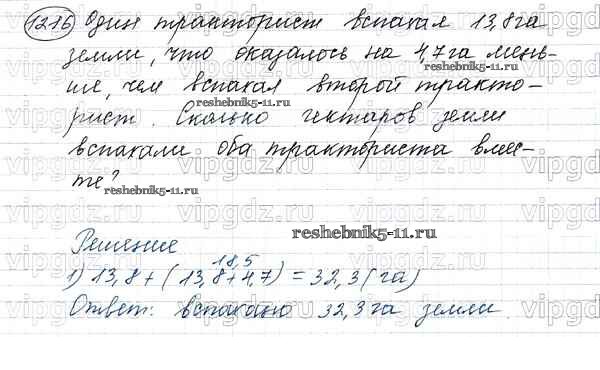 1216 Один тракторист вспахал 13,8 га
земли, что оказалось на 4,7 га мень-
ше, чем вспахал второй тракто-
reshebnik5-11.ru
рист. Сколько гектаров земли
вспахали оба тракториста вмес-
те?
reshebnik5-11.ru
reshebnik5-11.ru
Решение
18,5
1) 13,8 + (13,8+4,7) = 32,3 (га)
Ответ: вспахано 32,3 га земли.
vipgdz.ru